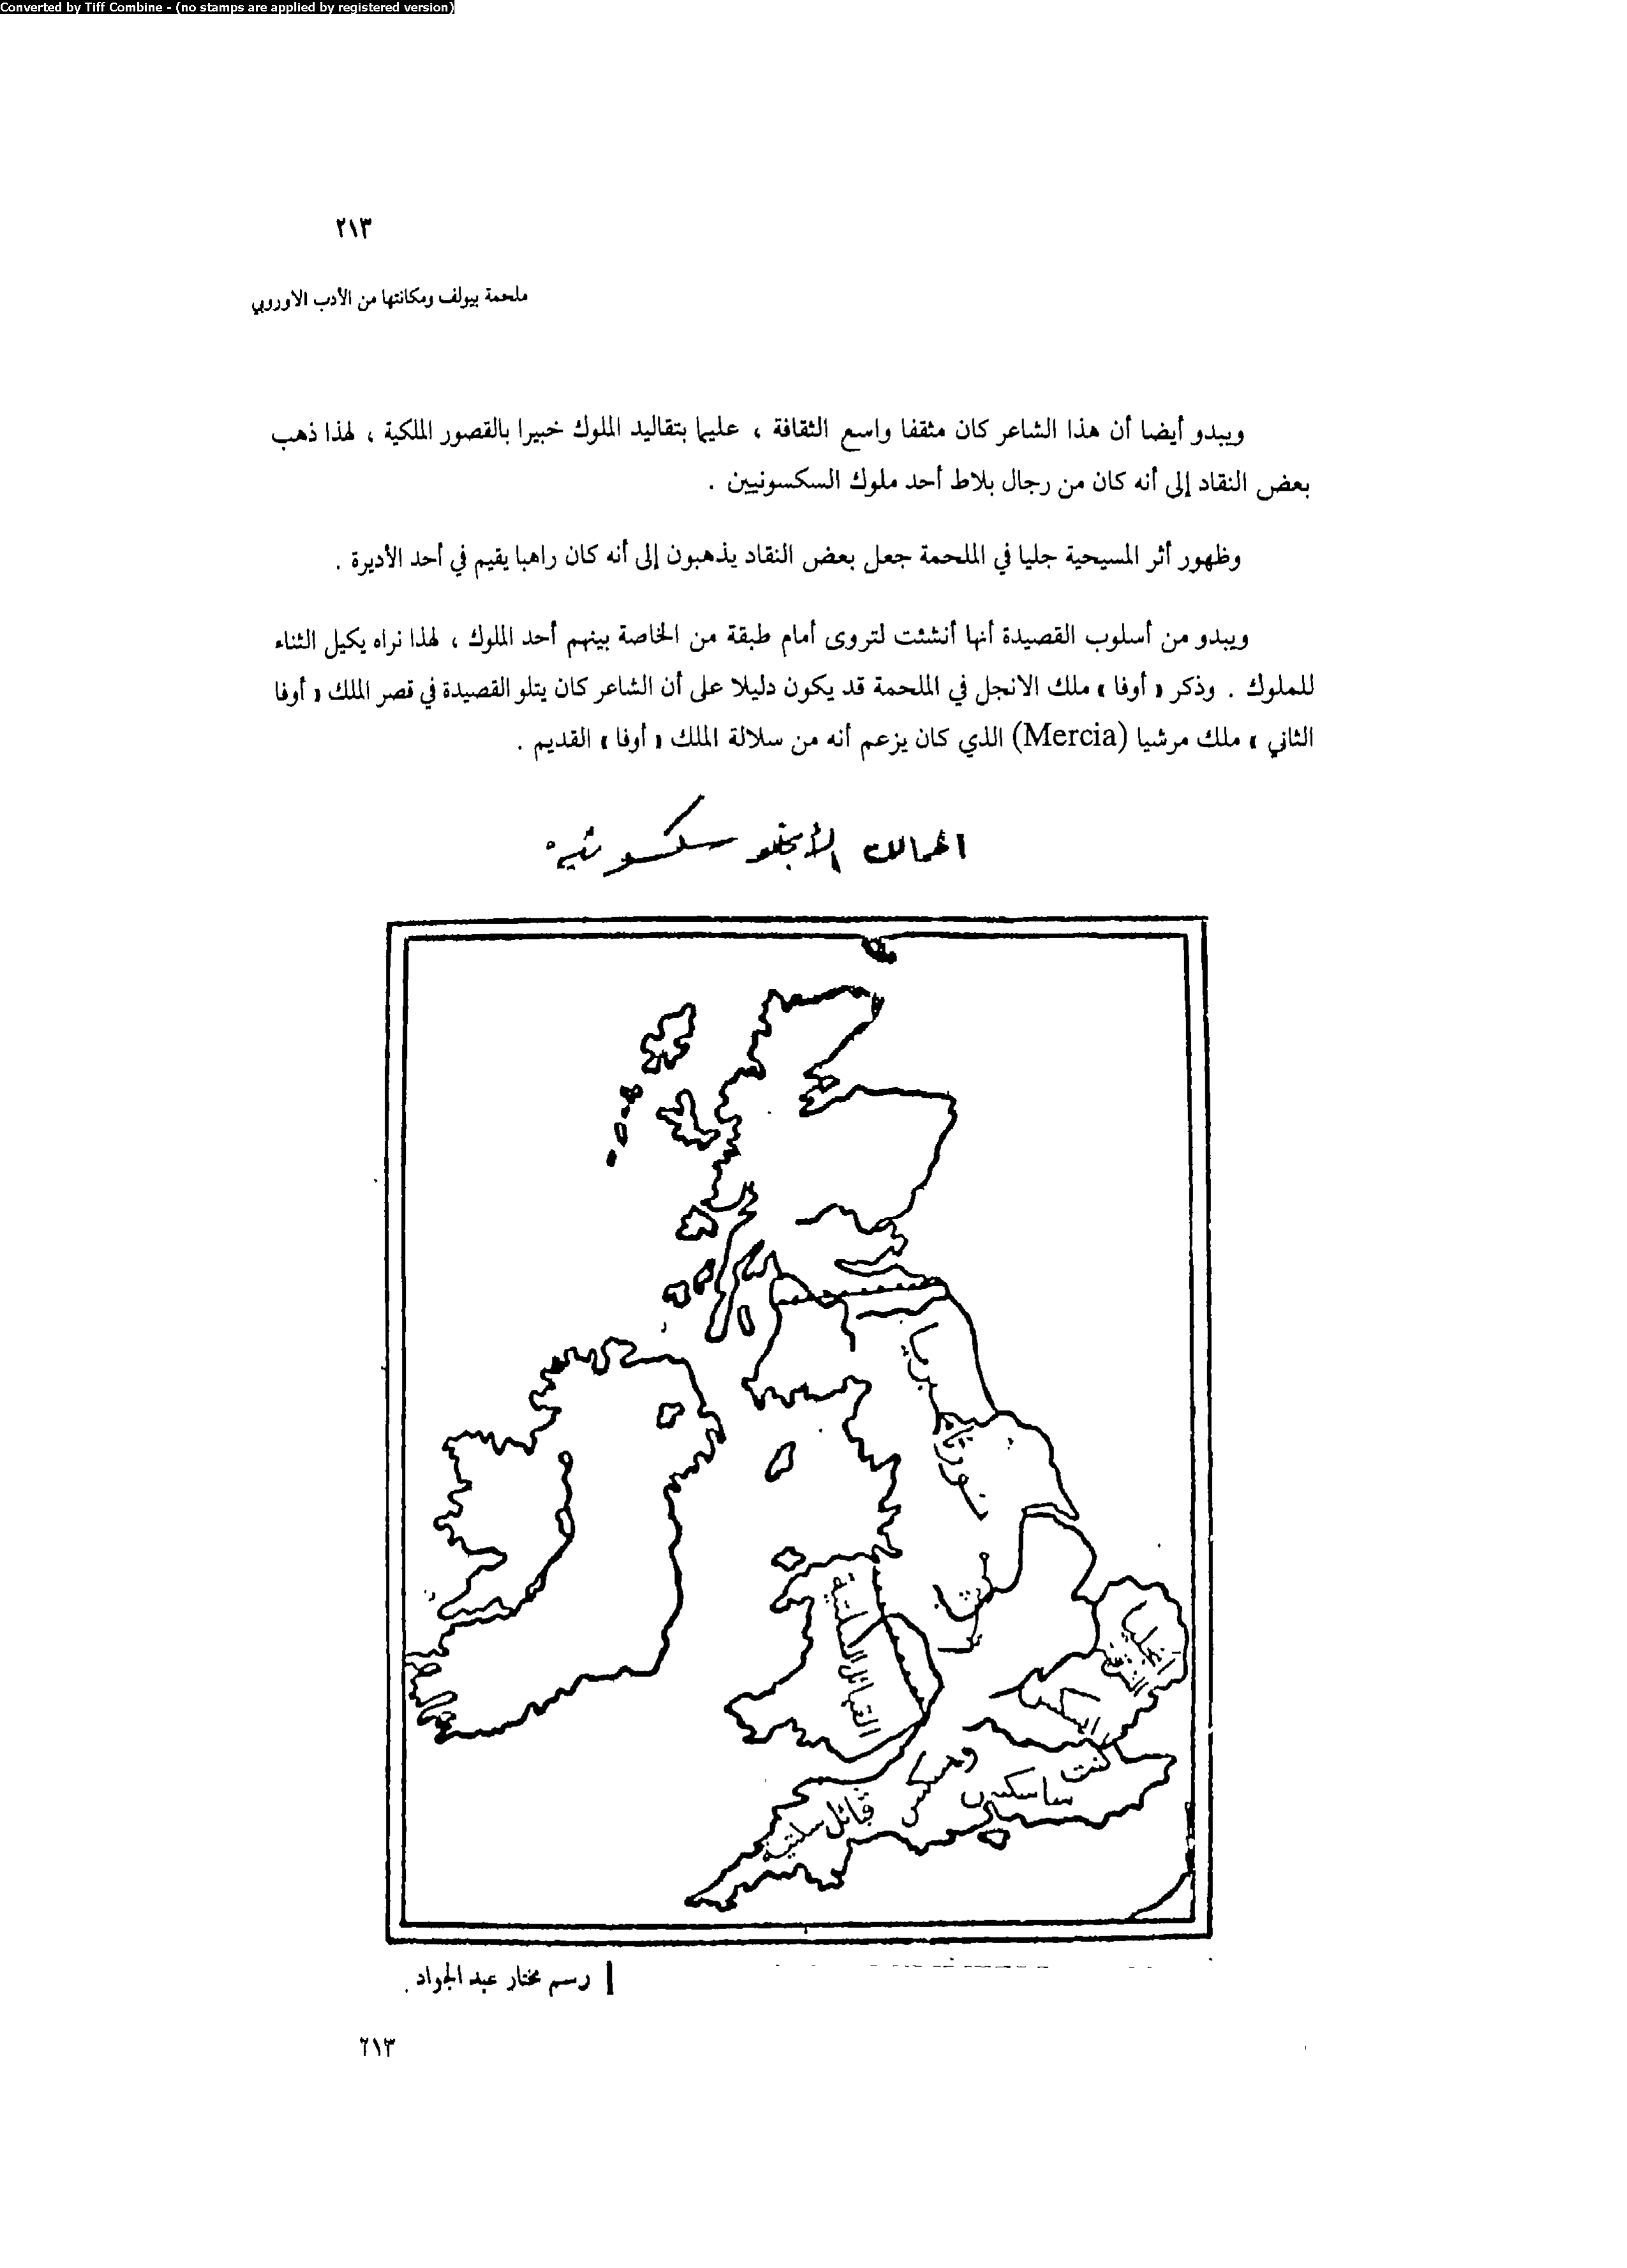 Converted by Tiff Combine - (no stamps are applied by registered version)
٢١٣
ملحمة بيولف ومكانتها من الأدب الاوروبي
ويبدو أيضا أن هذا الشاعر كان مثقفا واسع الثقافة ، عليما بتقاليد الملوك خبيرا بالقصور الملكية ، لهذا ذهب
بعض النقاد إلى أنه كان من رجال بلاط أحد ملوك السكسونيين .
وظهور أثر المسيحية جليا في الملحمة جعل بعض النقاد يذهبون إلى أنه كان راهبا يقيم في أحد الأديرة .
ويبدو من أسلوب القصيدة أنها أنشئت لتروى أمام طبقة من الخاصة بينهم أحد الملوك ، لهذا نراه يكيل الثناء
للملوك . وذكر « أوفا » ملك الانجل في الملحمة قد يكون دليلا على أن الشاعر كان يتلو القصيدة في قصر الملك « أوفا
الثاني » ملك مرشيا (Mercia) الذي كان يزعم أنه من سلالة الملك « أوفا » القديم .
الممالك الأنجلو سكسونيه
القبائل السلتية
كنت
ساسكس
وسكس
قبائل سلتية
رسم مختار عبد الجواد .
٢١٣